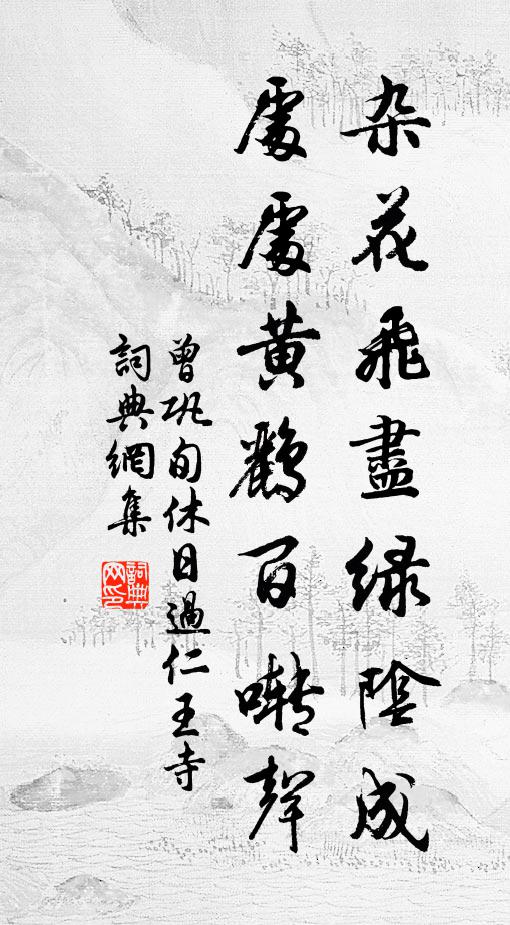 杂花飛盡緑陰成
處處黄鸝百囀聲
曾巩旬休日過仁王寺
詞典網集
詞典
网印